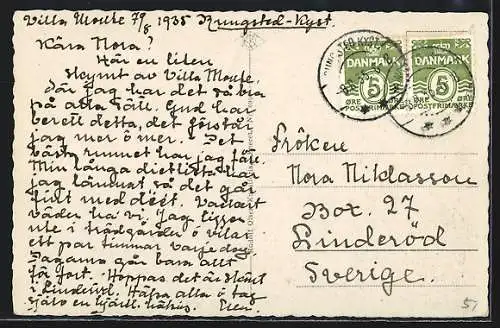 Villa Moute 7/8 1935 Rungsted-Kyst.
Kära Nora!
Här en liten
skymt av Villa Moute,
där jag har det så bra
på alla sätt. Gud har
berett detta, det förstår
jag mer o mer. Det
bästa rummet har jag fått.
Min långa dietlista har
jag lämnat så det går
fint med dieet. Vackert
väder ha vi. Jag ligger
ute i trädgården o vilar
ett par timmar varje dag.
Dagarna går bara allt
för fort. Hoppas det är skönt
i Linderöd. Hälsa alla o tag
själv en hjärtl. hälsn.
RUNGSTED KYST
DANMARK
5
ØRE
POSTFRIM
DANMARK
5
ØRE
POSTFRIM
Fröken
Nora Niklasson
Box. 27
Linderöd
Sverige.